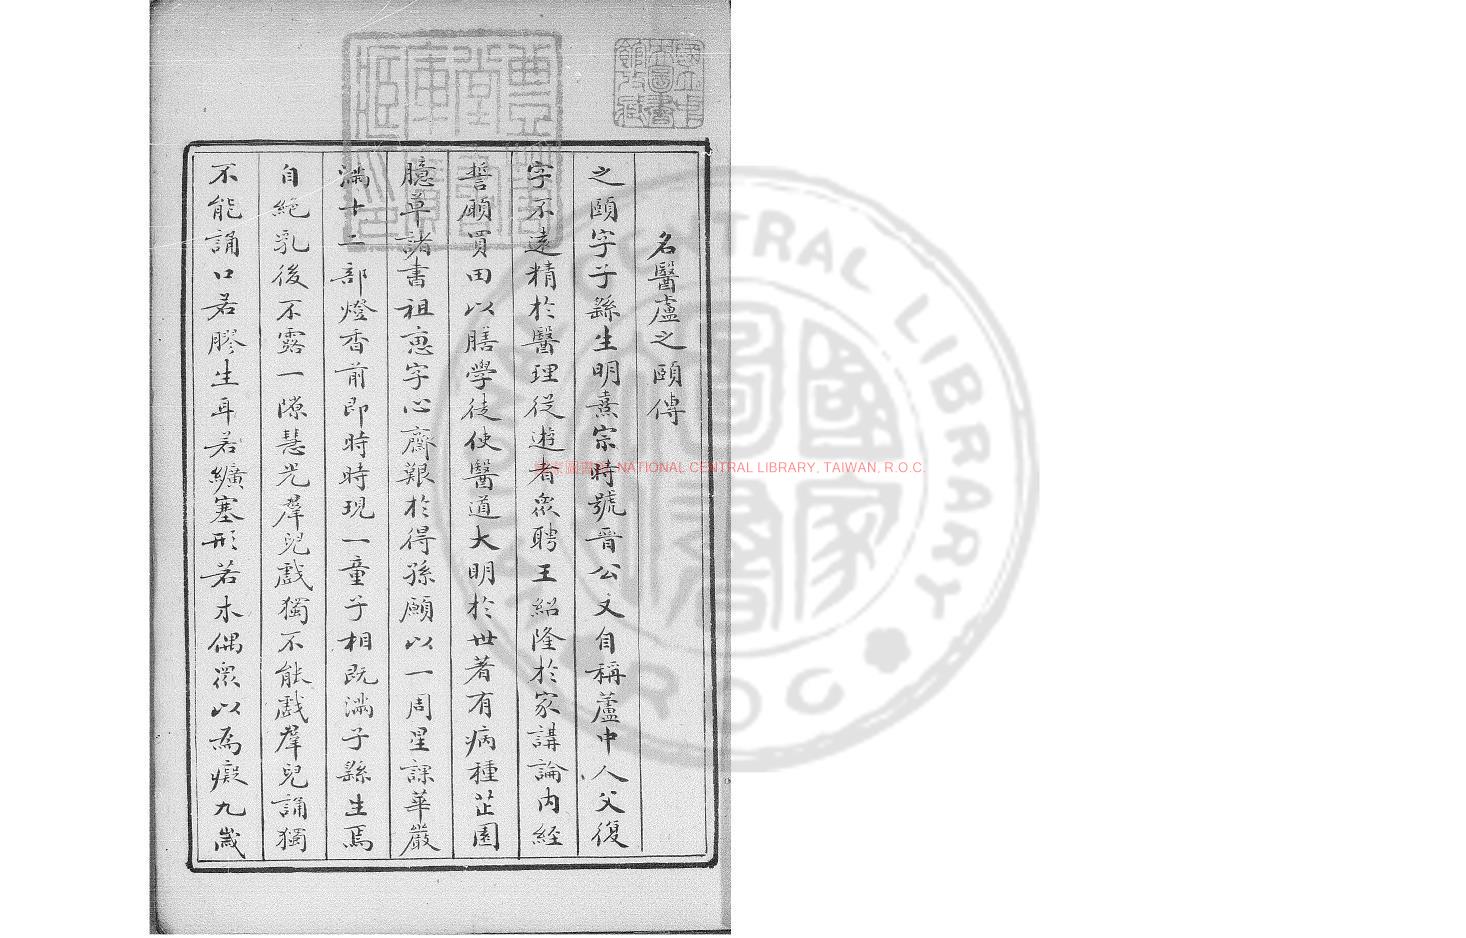 名醫盧之頤傳
之頤字子繇生明熹宗時號晋公又自稱蘆中人父復
字不遠精於醫理從遊者眾聘王紹隆於家講論內經
誓願買田以膳學徒使醫道大明於世著有病種芷園
臆草諸書祖惠字心齋艱於得孫願以一周星課華嚴
滿十二部燈香前即時時現一童子相既滿子繇生焉
自絕乳後不露一隙慧光羣兒戲獨不能戲羣兒誦獨
不能誦口若膠生耳若纊塞形若木偶眾以為癡九歲
國家圖書館 NATIONAL CENTRAL LIBRARY, TAIWAN, R.O.C.